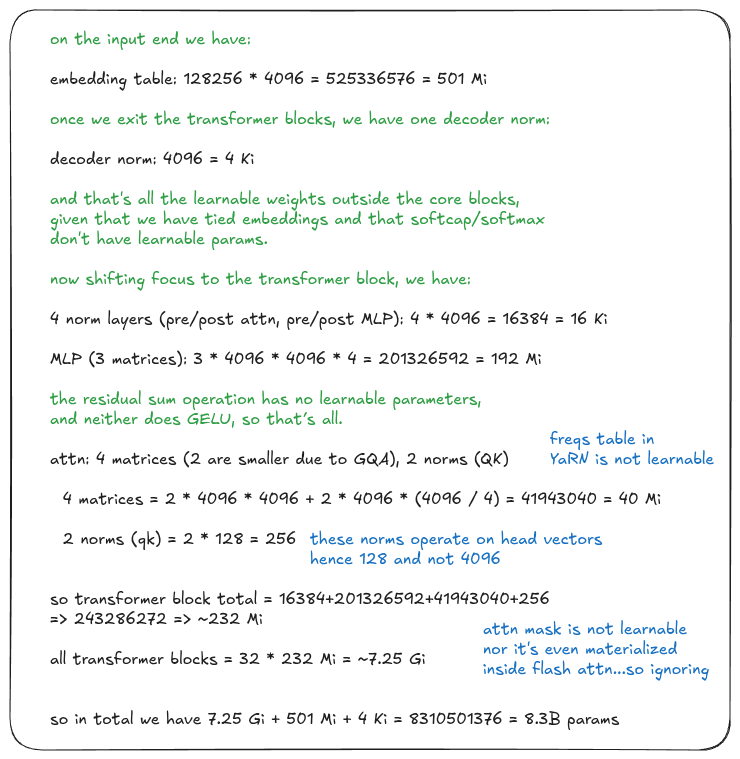 on the input end we have:
embedding table: 128256 * 4096 = 525336576 = 501 Mi
once we exit the transformer blocks, we have one decoder norm:
decoder norm: 4096 = 4 Ki
and that's all the learnable weights outside the core blocks,
given that we have tied embeddings and that softcap/softmax
don't have learnable params.
now shifting focus to the transformer block, we have:
4 norm layers (pre/post attn, pre/post MLP): 4 * 4096 = 16384 = 16 Ki
MLP (3 matrices): 3 * 4096 * 4096 * 4 = 201326592 = 192 Mi
the residual sum operation has no learnable parameters,
and neither does GELU, so that's all.
freqs table in
YaRN is not learnable
attn: 4 matrices (2 are smaller due to GQA), 2 norms (QK)
4 matrices = 2 * 4096 * 4096 + 2 * 4096 * (4096 / 4) = 41943040 = 40 Mi
2 norms (qk) = 2 * 128 = 256
these norms operate on head vectors
hence 128 and not 4096
so transformer block total = 16384+201326592+41943040+256
=> 243286272 => ~232 Mi
attn mask is not learnable
nor it's even materialized
inside flash attn...so ignoring
all transformer blocks = 32 * 232 Mi = ~7.25 Gi
so in total we have 7.25 Gi + 501 Mi + 4 Ki = 8310501376 = 8.3B params